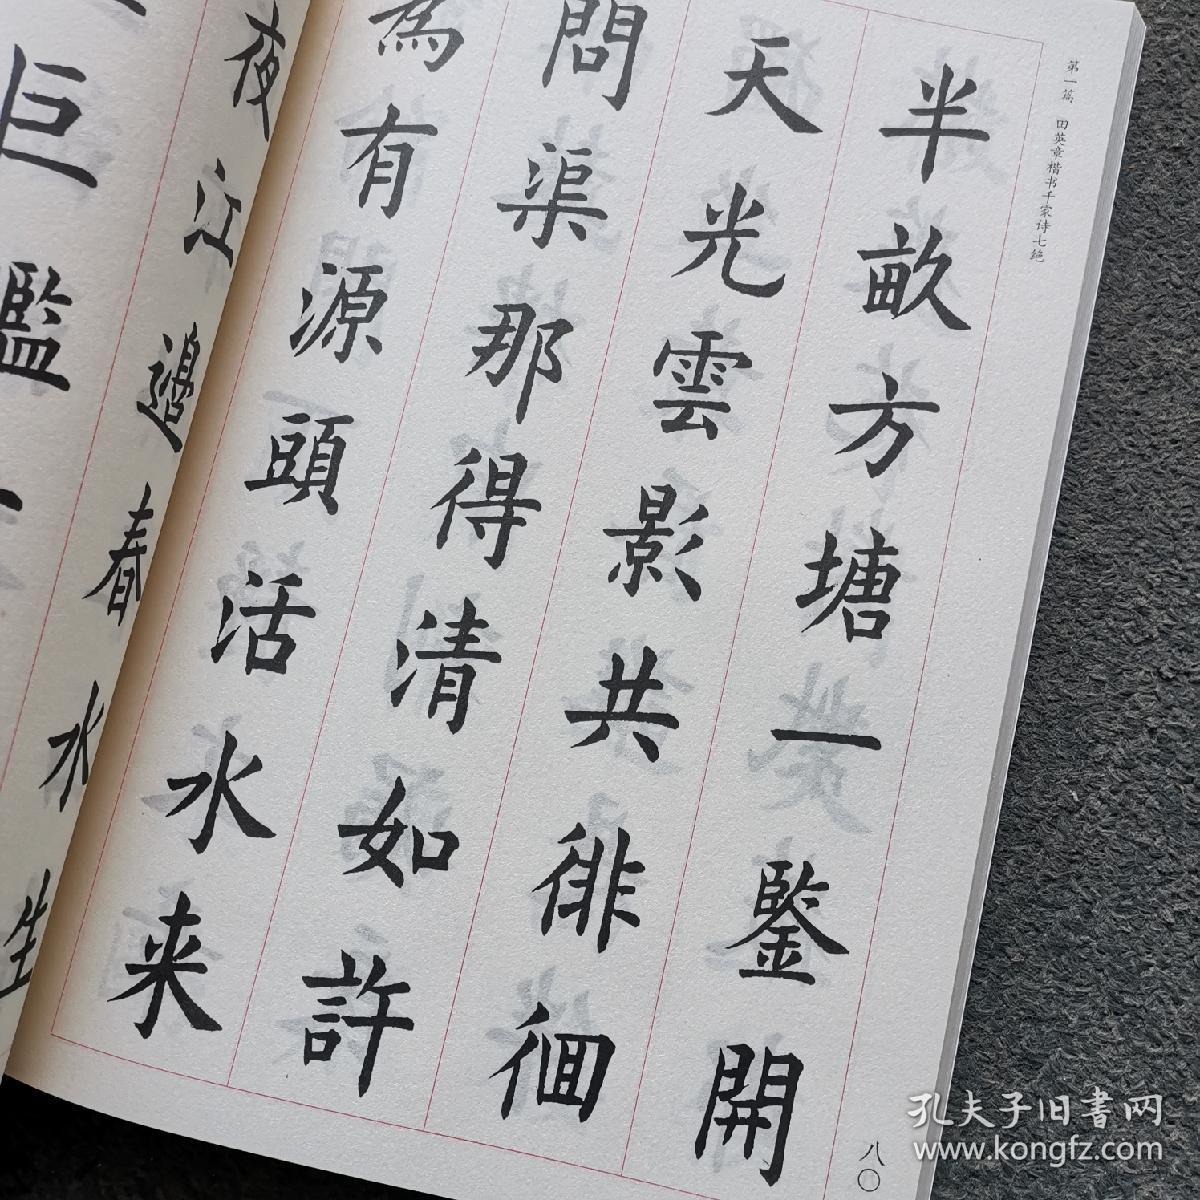 第一篇 田英章楷书千家诗七绝
半畝方塘一鑒開
天光雲影共徘徊
問渠那得清如許
為有源頭活水来
八〇
夜江邊春水生
巨艦
孔夫子旧书网
www.kongfz.com